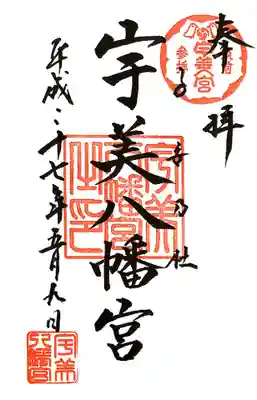 奉拝
宇美八幡宮
平成二十七年五月九日
宇美
八幡宮
之印
宇美
八幡宮